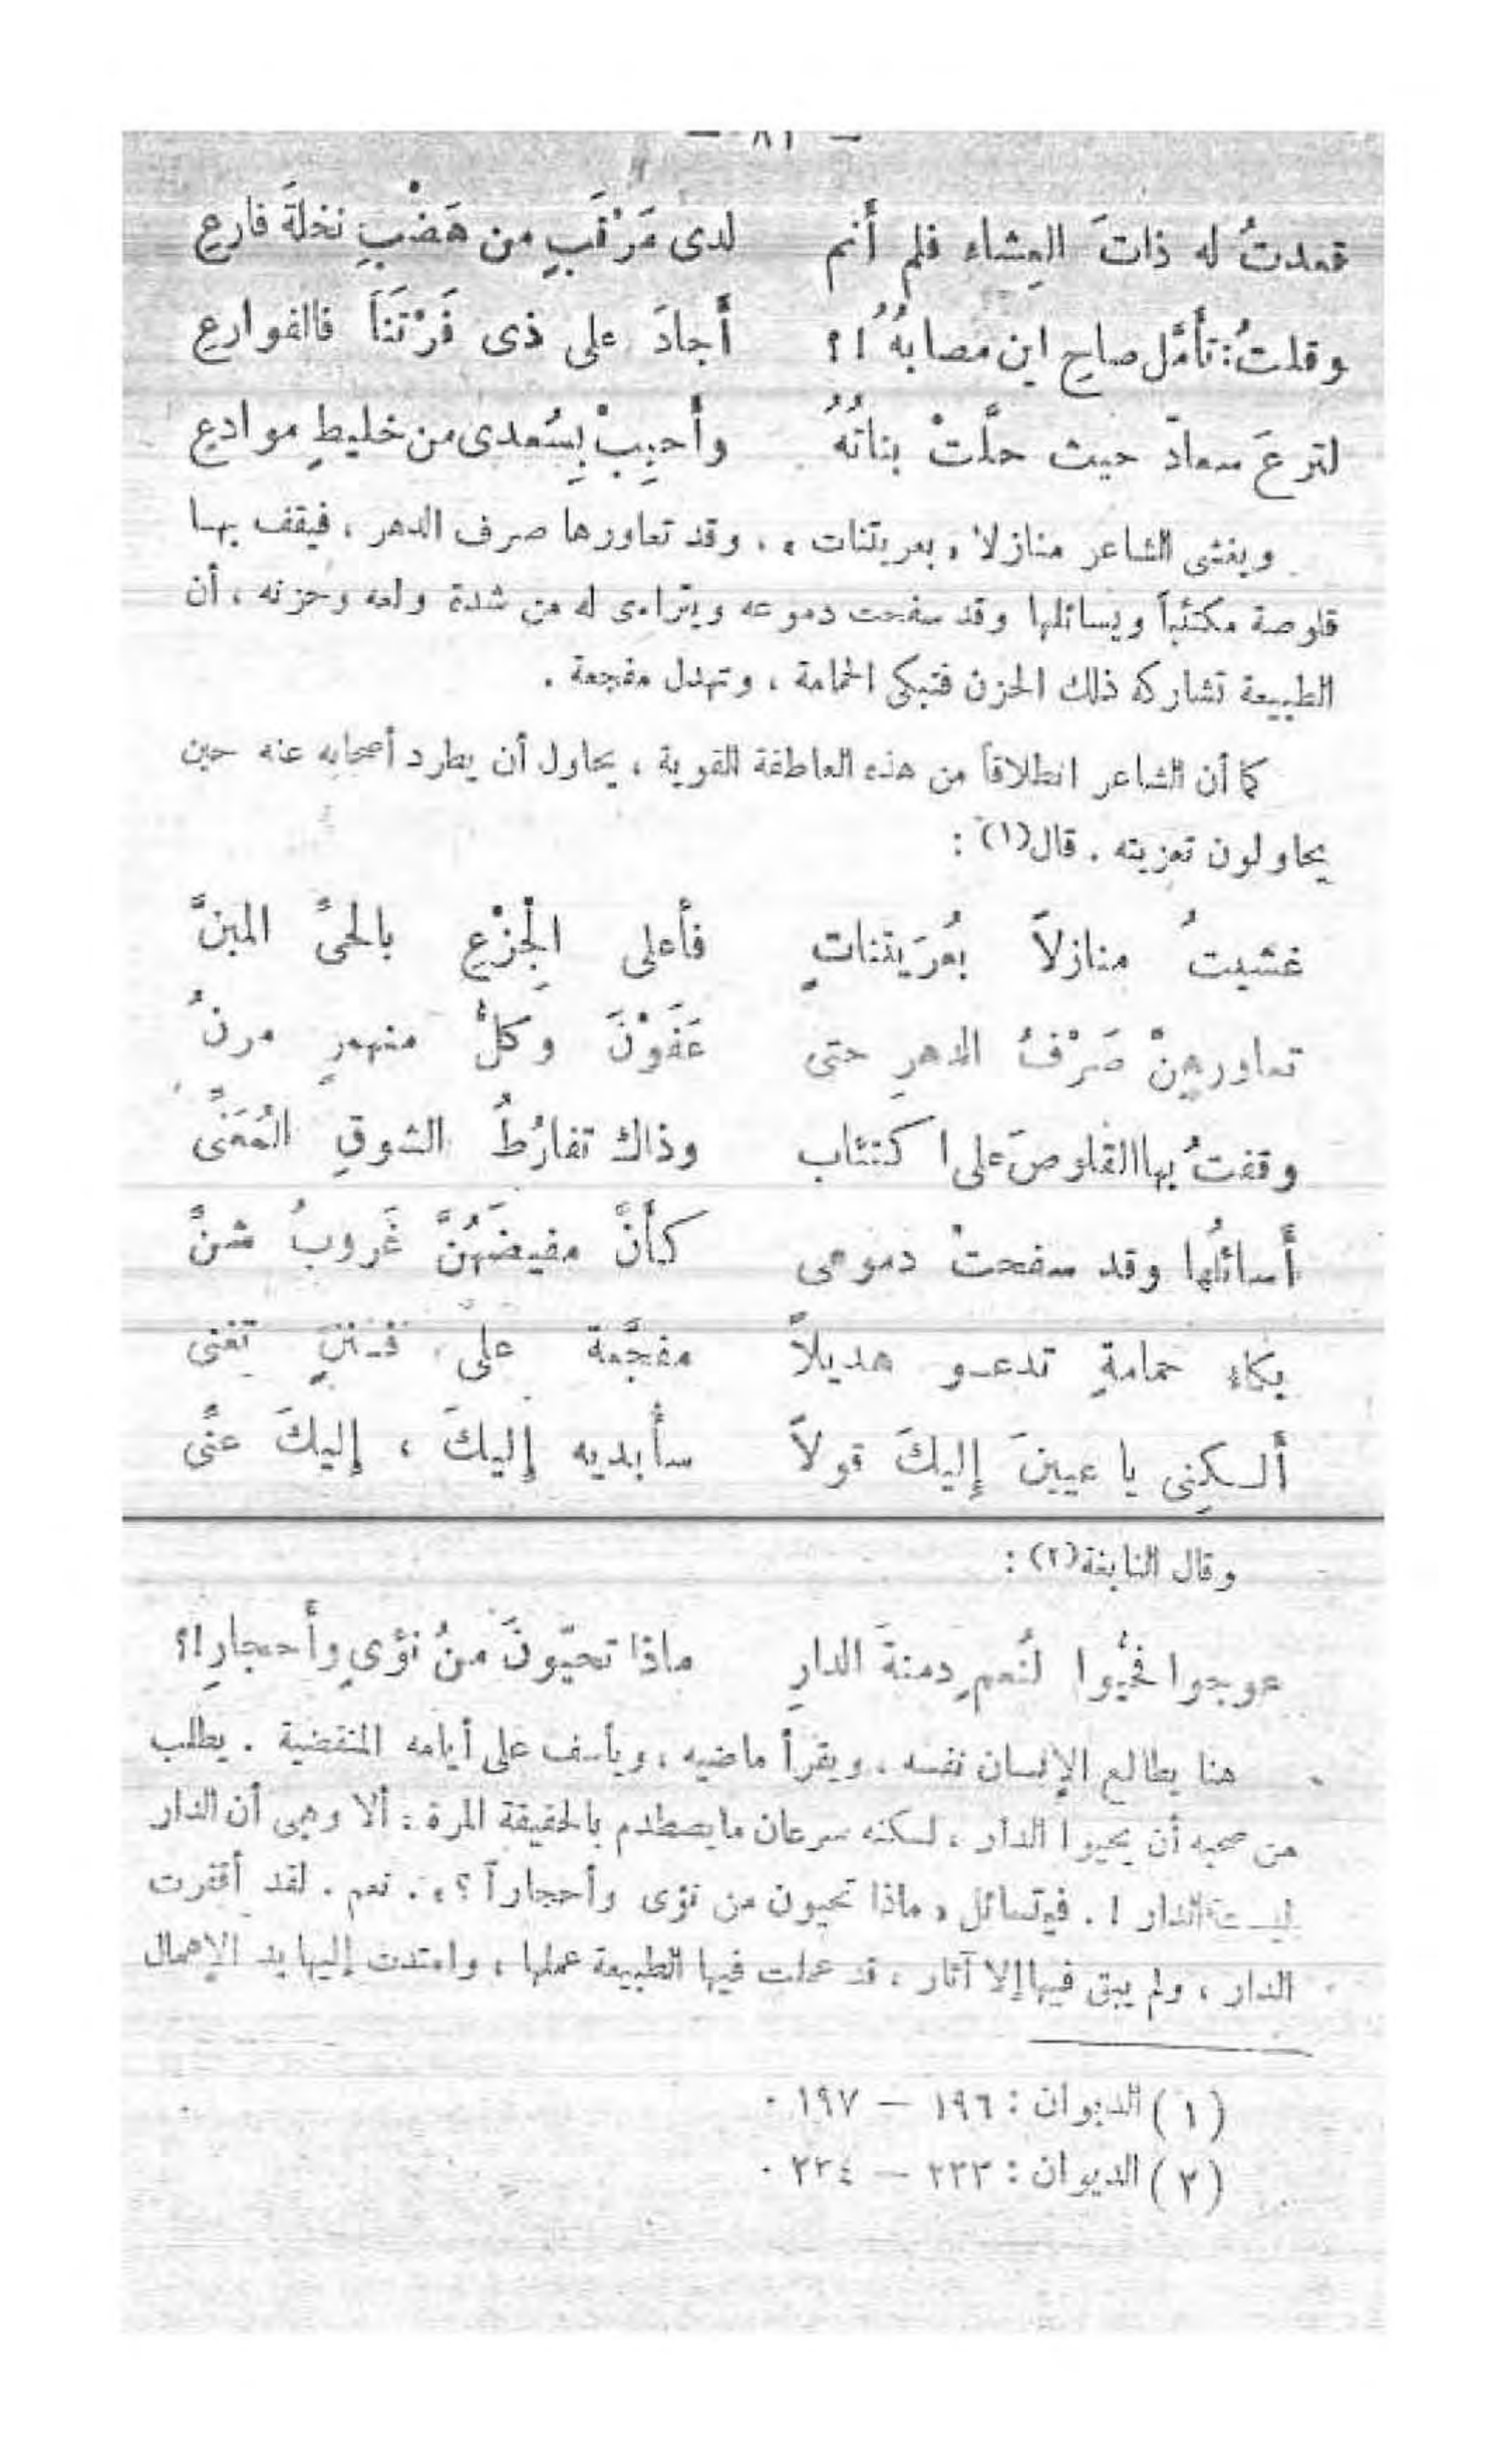 — ٨١ —
قعدتُ له ذاتَ العِشاء فلم أَنم لدى مَرْقَبٍ من هَضْبِ نخلةَ فارعِ
وقلتُ: تأمَّل صاحِ اين مَصابهُ ا؟ أَجادَ على ذى فَرْتَنَاَ فالفوارعِ
لترعَ سعادّ حيث حلَّتْ بناتُهُ وأَحبِبْ بِسُعدى من خليطٍ موادعِ
ويغشى الشاعر منازلا « بعريتنات » ، وقد تعاورها صرف الدهر ، فيقف بها
قلوصة مكتئباً ويسائلها وقد سفحت دموعه ويتراءى له من شدة ولعه وحزنه ، أن
الطبيعة تشاركه ذلك الحزن فتبكى الحمامة ، وتهدل مفجعة .
كما أن الشاعر انطلاقاً من هذه العاطفة القوية ، يحاول أن يطرد أصحابه عنه حين
يحاولون تعزيته . قال(١) :
غشيتُ منازلاً بعُرَيتناتٍ فأعلى الْجِزْعِ بالحىِّ المبنِّ
تعاورهنْ صَرْفُ الدهرِ حتى عَفَوْنَ وَكلُّ منهمرٍ مرنُ
وقفتُ بها القلوصَ على اكتئاب وذاك تفارُطُ الشوقِ المُعَنِّى
أَسائلُها وقد سفحتْ دموعى كأنَّ مفيضَهُنَّ غَروبُ شنِّ
بكاء حمامةٍ تدعو هديلاً مفجَّعة على فننٍ تغنى
أَلسكِنى يا عيينَ إِليكَ قولاً سأُبديه إِليكَ ، إِليكَ عنِّى
وقال النابغة(٢) :
عوجوا فحُيُّوا لنُعمٍ دمنةَ الدارِ ماذا تحيّونَ منُ نؤىٍ وأَحجارِ ا؟
هنا يطالع الإنسان نفسه ، ويقرأ ماضيه ، ويأسف على أيامه المنقضية . يطلب
من صحبه أن يحيوا الدار ، لسكنه سرعان مايصطدم بالحقيقة المرة : ألا وهى أن الدار
ليست الدار ! . فيتسائل « ماذا تحيون من نؤى وأحجاراً ؟ » . نعم . لقد أقفرت
الدار ، ولم يبق فيها إلا آثار ، قد عملت فيها الطبيعة عملها ، وامتدت إليها يد الإهمال
(١) الديوان : ١٩٦ — ١٩٧ .
(٢) الديوان : ٢٣٣ — ٢٣٤ .